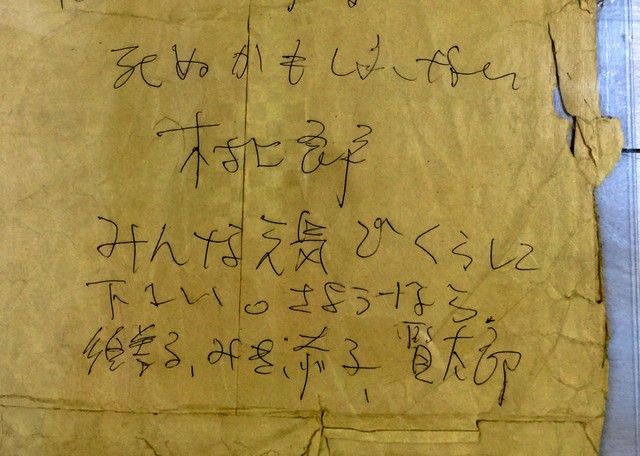 死ぬかもしれない
村上良平
みんな元気でくらして
下さい。さようなら。
須美子、みき、恭子、賢太郎